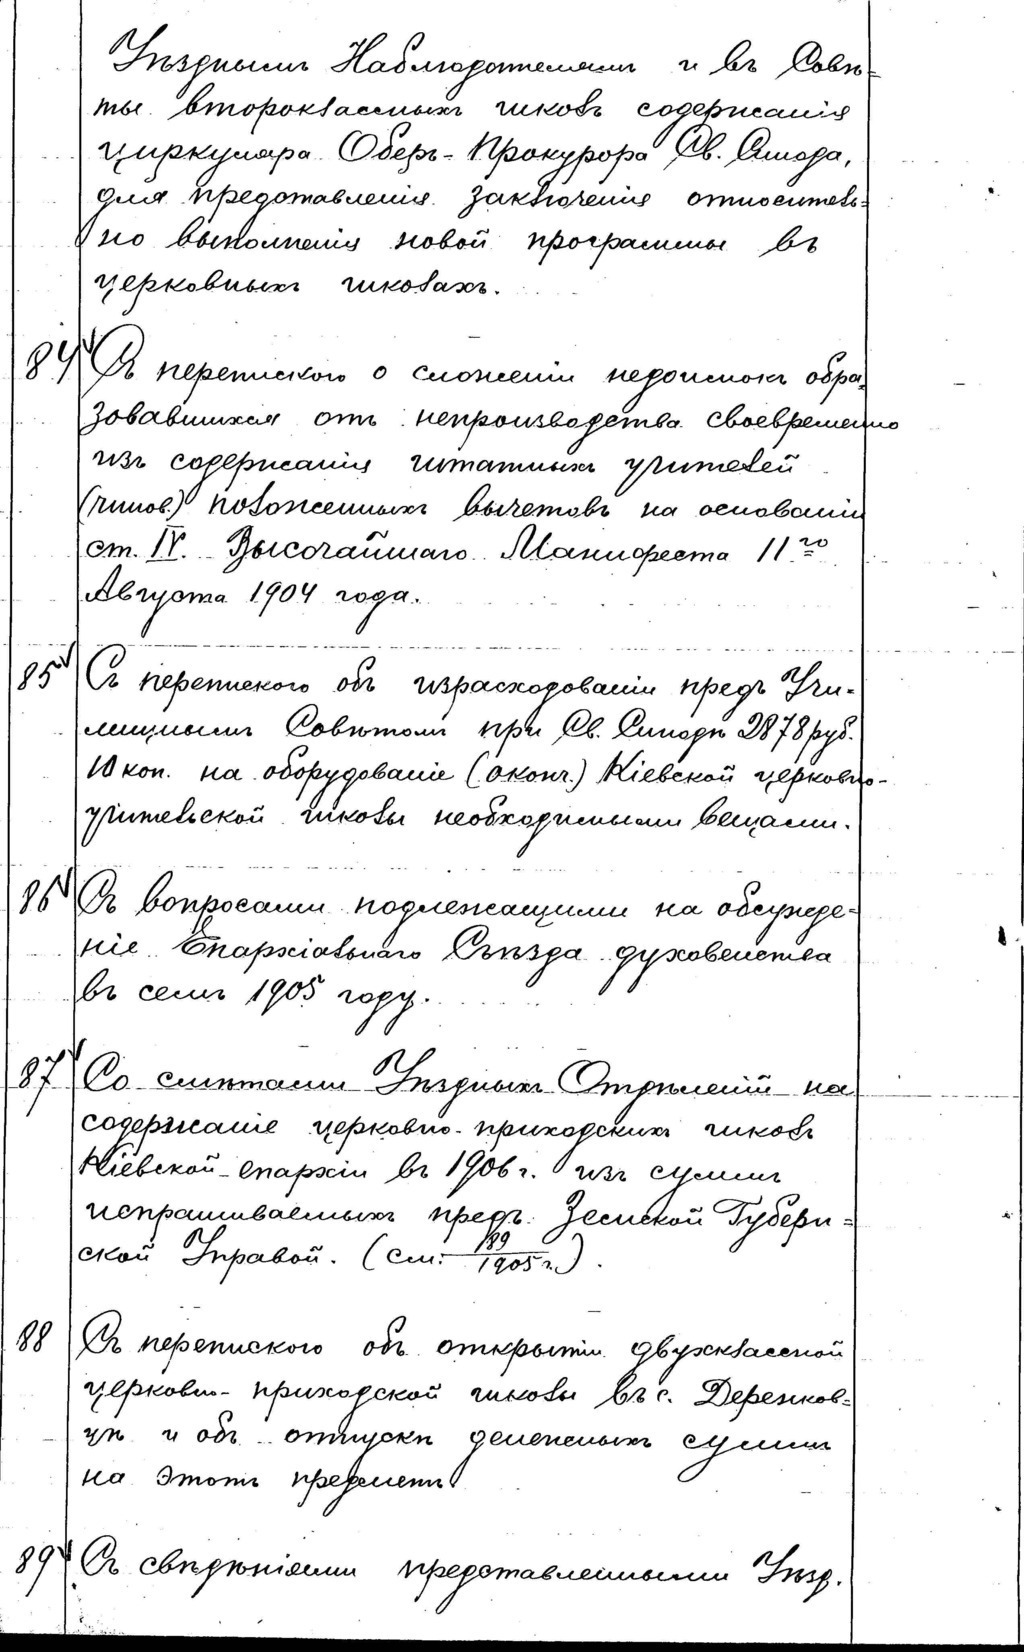 Уѣзднымъ Наблюдателямъ и въ Совѣ=
ты второклассныхъ школъ содержанія
циркуляра Оберъ-Прокурора Св. Синода,
для представленія заключенія относитель=
но выполненія новой программы въ
церковныхъ школахъ.
84 Съ перепискою о сложеніи недоимокъ обра
зовавшихся отъ непроизводства своевременно
изъ содержанія штатныхъ учителей
(чинов.) положенныхъ вычетовъ на основаніи
ст. IV. Высочайшаго Манифеста 11го
Августа 1904 года.
85 Съ перепискою объ израсходованіи предъ Учи-
лищнымъ Совѣтомъ при Св. Синодѣ 2878 руб.
10 коп. на оборудованіе (оконч.) Кіевской церковно-
учительской школы необходимыми вещами.
86 Съ вопросами подлежащими на обсужде-
ніе Епархіальнаго Съѣзда духовенства
въ семъ 1905 году.
87 Со смѣтами Уѣздныхъ Отдѣленій на
содержаніе церковно-приходскихъ школъ
Кіевской епархіи въ 1906 г. изъ суммъ
испрашиваемыхъ предъ Земской Губерн=
ской Управой. (см. 189/1905 г.).
88 Съ перепискою объ открытіи двухклассной
церковно-приходской школы въ с. Деренков=
цѣ и объ отпускѣ денежныхъ суммъ
на этотъ предметъ
89 Съ свѣдѣніями представленными Уѣзд.